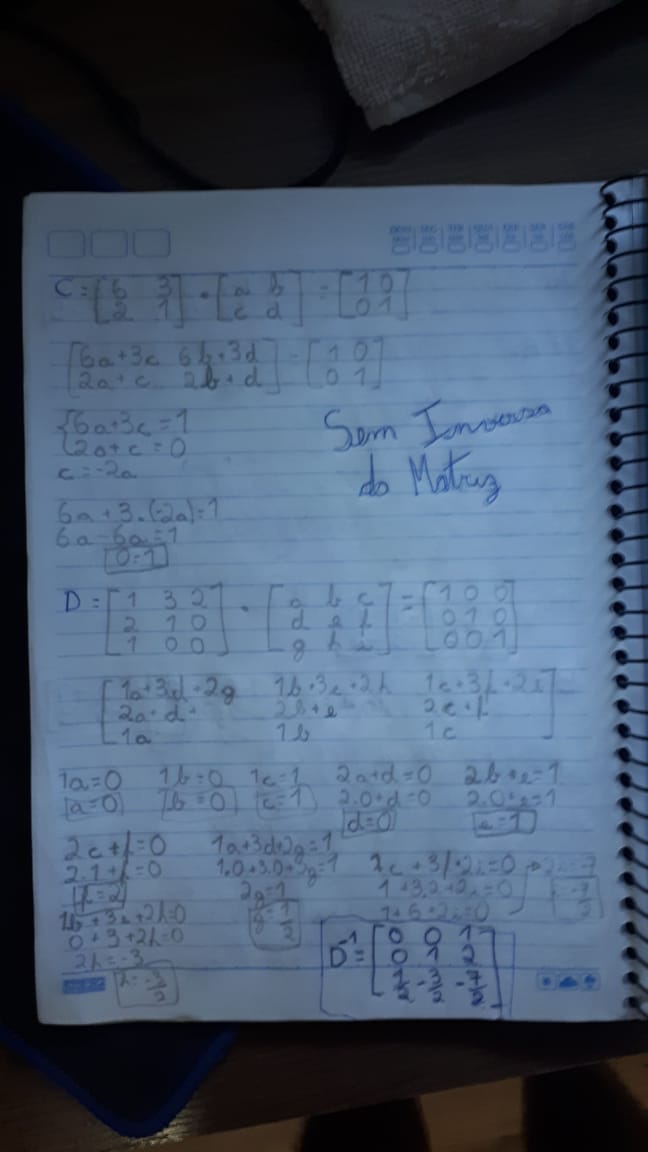 C = [6 3; 2 1] · [a b; c d] = [1 0; 0 1]
[6a+3c 6b+3d; 2a+c 2b+d] = [1 0; 0 1]
{6a+3c = 1
{2a+c = 0
c = -2a
Sem Inversa
da Matriz
6a + 3.(-2a) = 1
6a - 6a = 1
0 = 1
D = [1 3 2; 2 1 0; 1 0 0] · [a b c; d e f; g h i] = [1 0 0; 0 1 0; 0 0 1]
[1a+3d+2g 1b+3e+2h 1c+3f+2i; 2a+d 2b+e 2c+f; 1a 1b 1c]
1a=0 1b=0 1c=1 2a+d=0 2b+e=1
a=0 b=0 c=1 2.0+d=0 2.0+e=1
d=0 e=1
2c+f=0 1a+3d+2g=1
2.1+f=0 1.0+3.0+2g=1 1c+3f+2i=0 2i=-7
f=2 2g=1 1+3.2+2i=0 i=-7/2
1b+3e+2h=0 g=1/2 1+6+2i=0
0+3+2h=0
2h=-3
h=-3/2
D⁻¹ = [0 0 1; 0 1 2; 1/2 -3/2 -7/2]